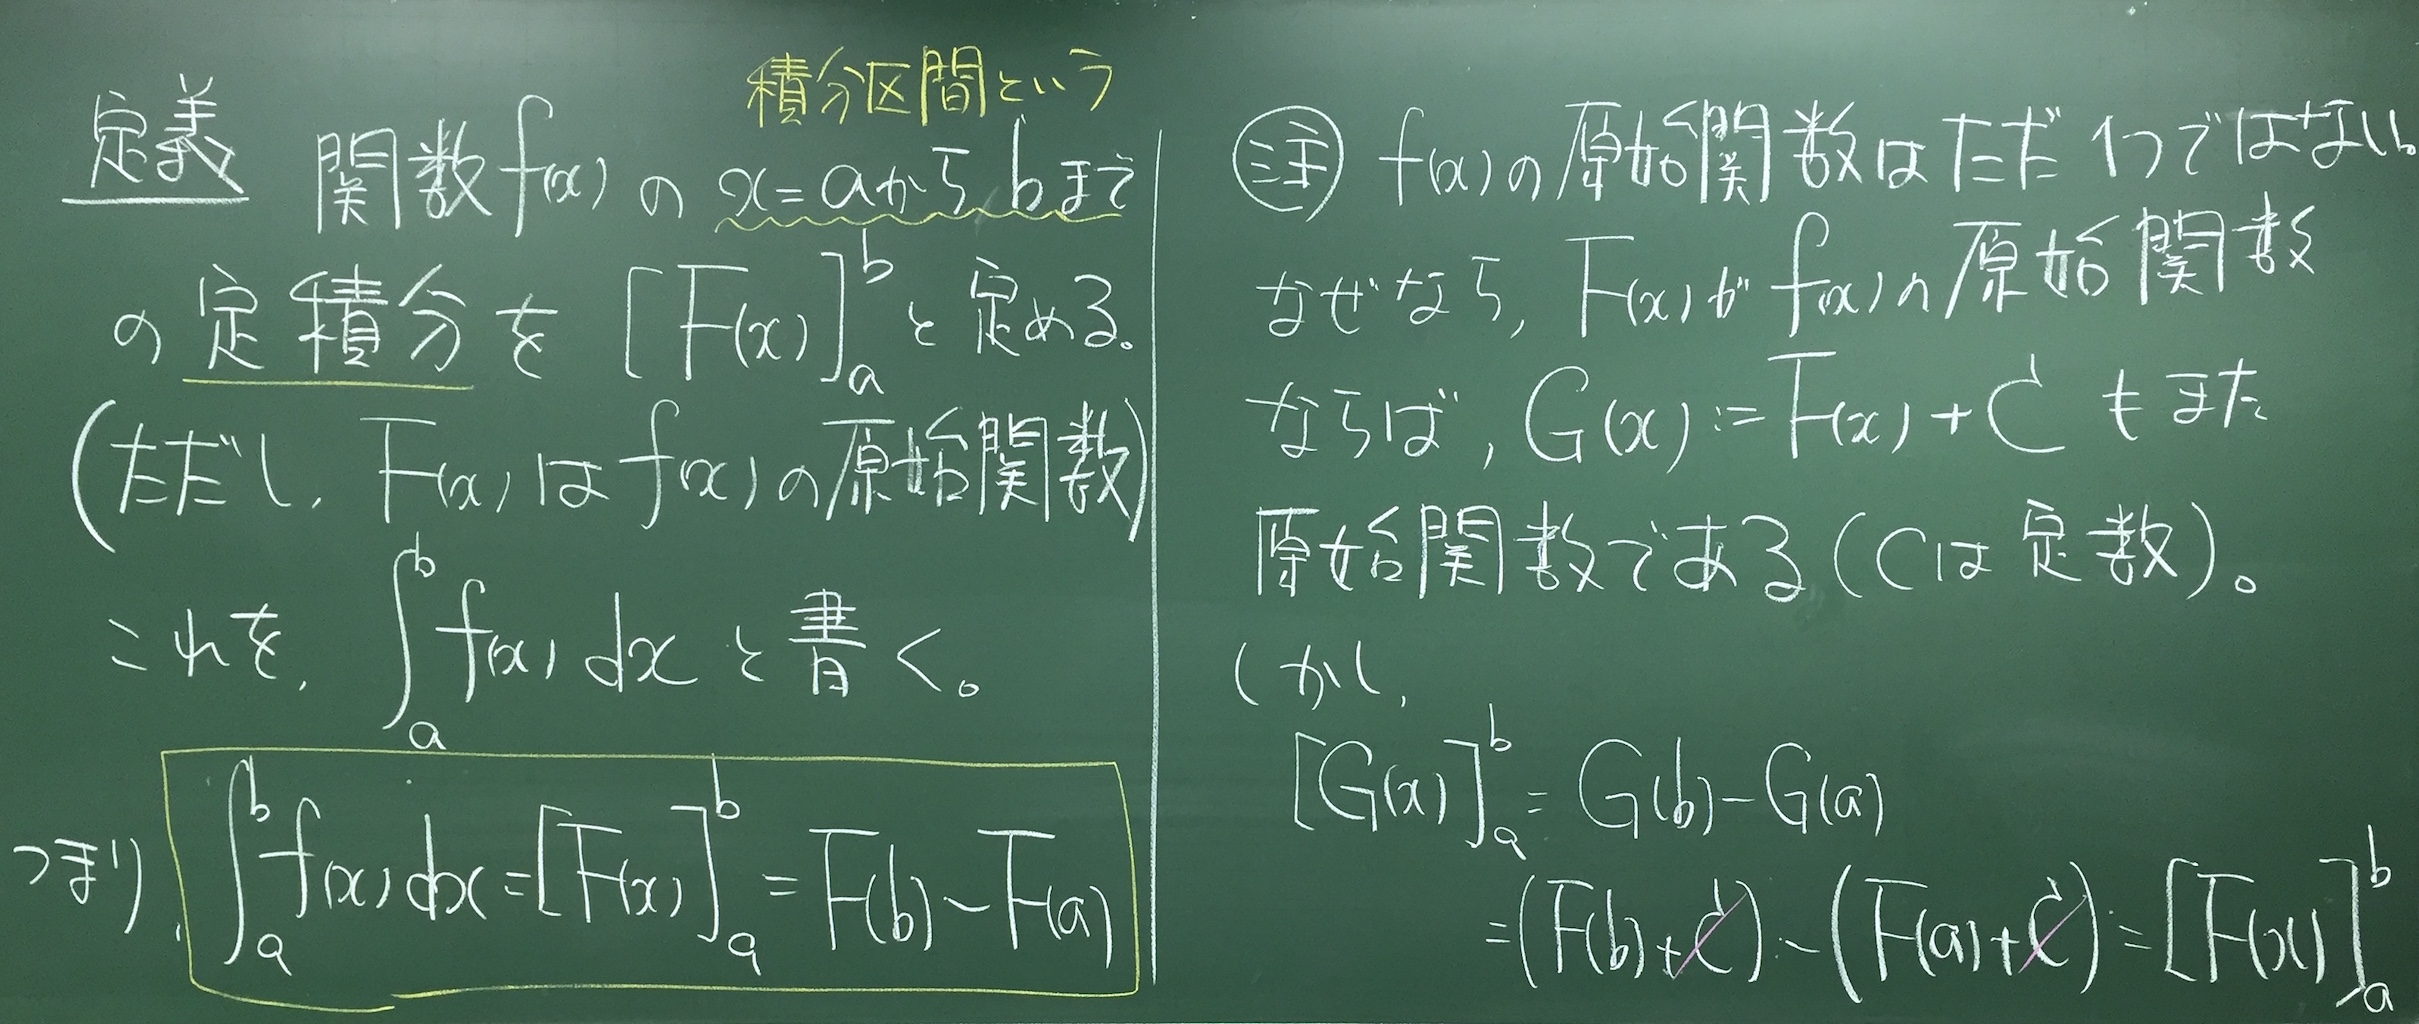 積分区間という
定義 関数f(x)の x=aからbまで
の定積分を [F(x)]_a^b と定める。
(ただし, F(x)はf(x)の原始関数)
これを, ∫_a^b f(x)dx と書く。
つまり, ∫_a^b f(x)dx = [F(x)]_a^b = F(b)-F(a)
注 f(x)の原始関数はただ1つではない。
なぜなら, F(x)がf(x)の原始関数
ならば, G(x):=F(x)+C もまた
原始関数である(Cは定数)。
しかし,
[G(x)]_a^b = G(b)-G(a)
=(F(b)+C)-(F(a)+C)=[F(x)]_a^b